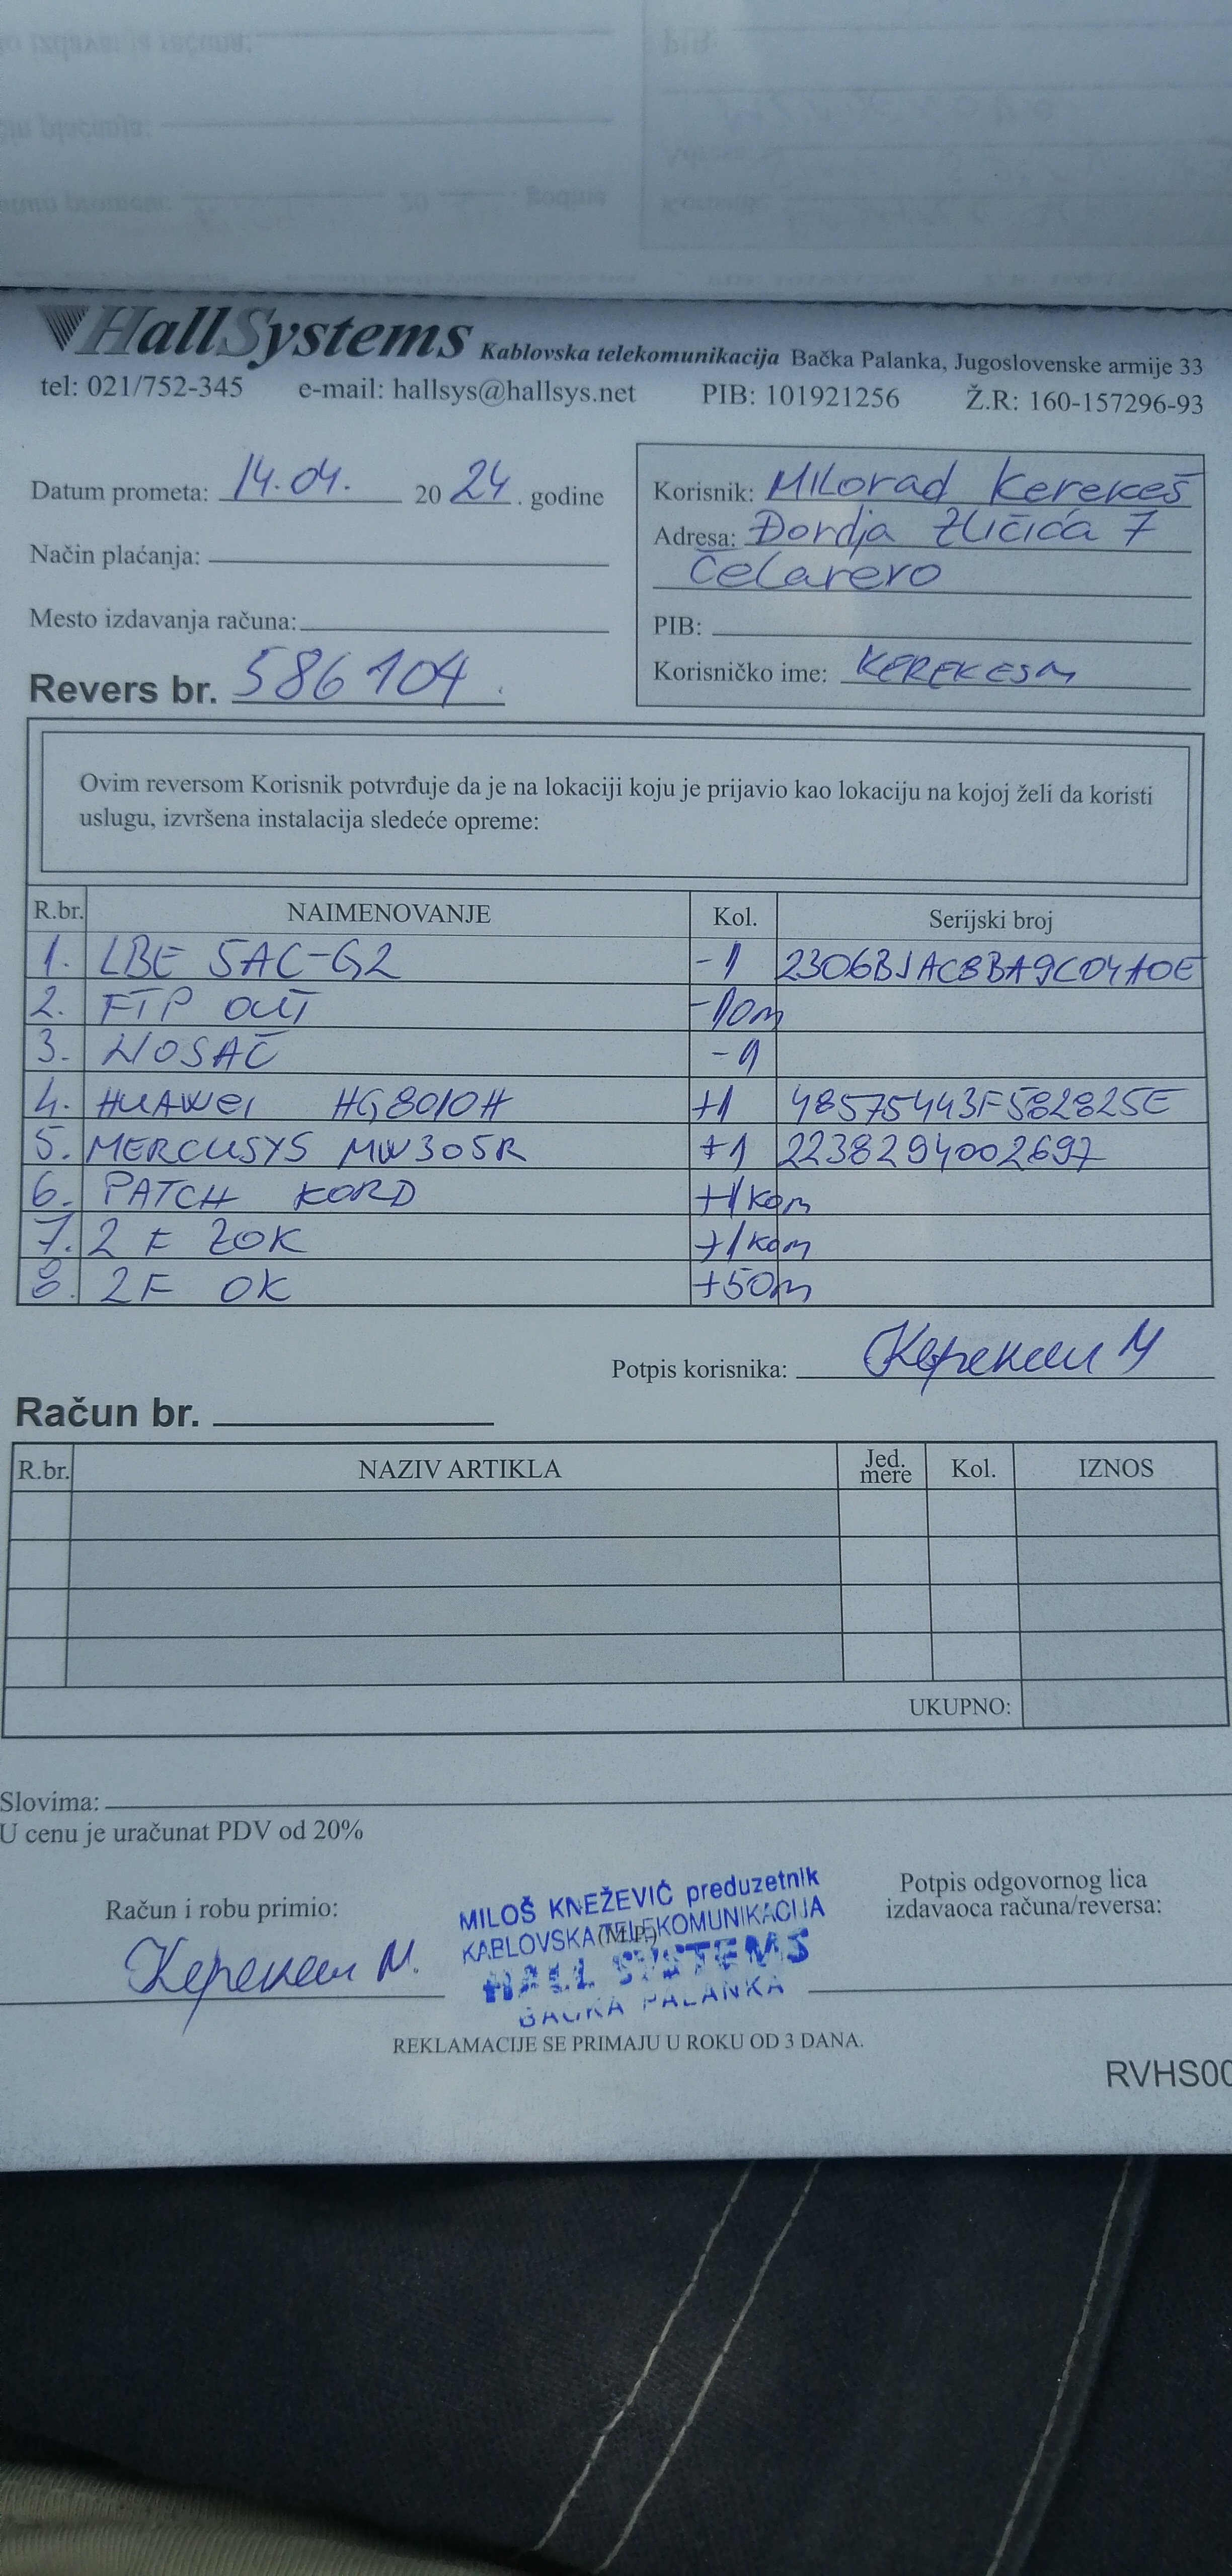 HallSystems Kablovska telekomunikacija Bačka Palanka, Jugoslovenske armije 33
tel: 021/752-345 e-mail: hallsys@hallsys.net PIB: 101921256 Ž.R: 160-157296-93
Datum prometa: 14.04. 2024. godine
Način plaćanja:
Mesto izdavanja računa:
Revers br. 586104
Korisnik: Milorad Kerekeš
Adresa: Đordja Zličića 7
Čelarevo
PIB:
Korisničko ime: KEREKESM
Ovim reversom Korisnik potvrđuje da je na lokaciji koju je prijavio kao lokaciju na kojoj želi da koristi
uslugu, izvršena instalacija sledeće opreme:
R.br. NAIMENOVANJE Kol. Serijski broj
1. LBE 5AC-G2 -1 2306BJAC8BA9C04A0E
2. FTP OUT -10m
3. NOSAČ -1
4. HUAWEI HG8010H +1 48575443F582825E
5. MERCUSYS MW305R +1 2238294002697
6. PATCH KORD +1kom
7. 2 F ZOK +1kom
8. 2F OK +50m
Potpis korisnika: Керекеш М
Račun br.
R.br. NAZIV ARTIKLA Jed. mere Kol. IZNOS
UKUPNO:
Slovima:
U cenu je uračunat PDV od 20%
Račun i robu primio:
Керекеш М.
MILOŠ KNEŽEVIĆ preduzetnik
KABLOVSKA TELEKOMUNIKACIJA
(M.P.)
HALL SYSTEMS
BAČKA PALANKA
Potpis odgovornog lica
izdavaoca računa/reversa:
REKLAMACIJE SE PRIMAJU U ROKU OD 3 DANA.
RVHS00